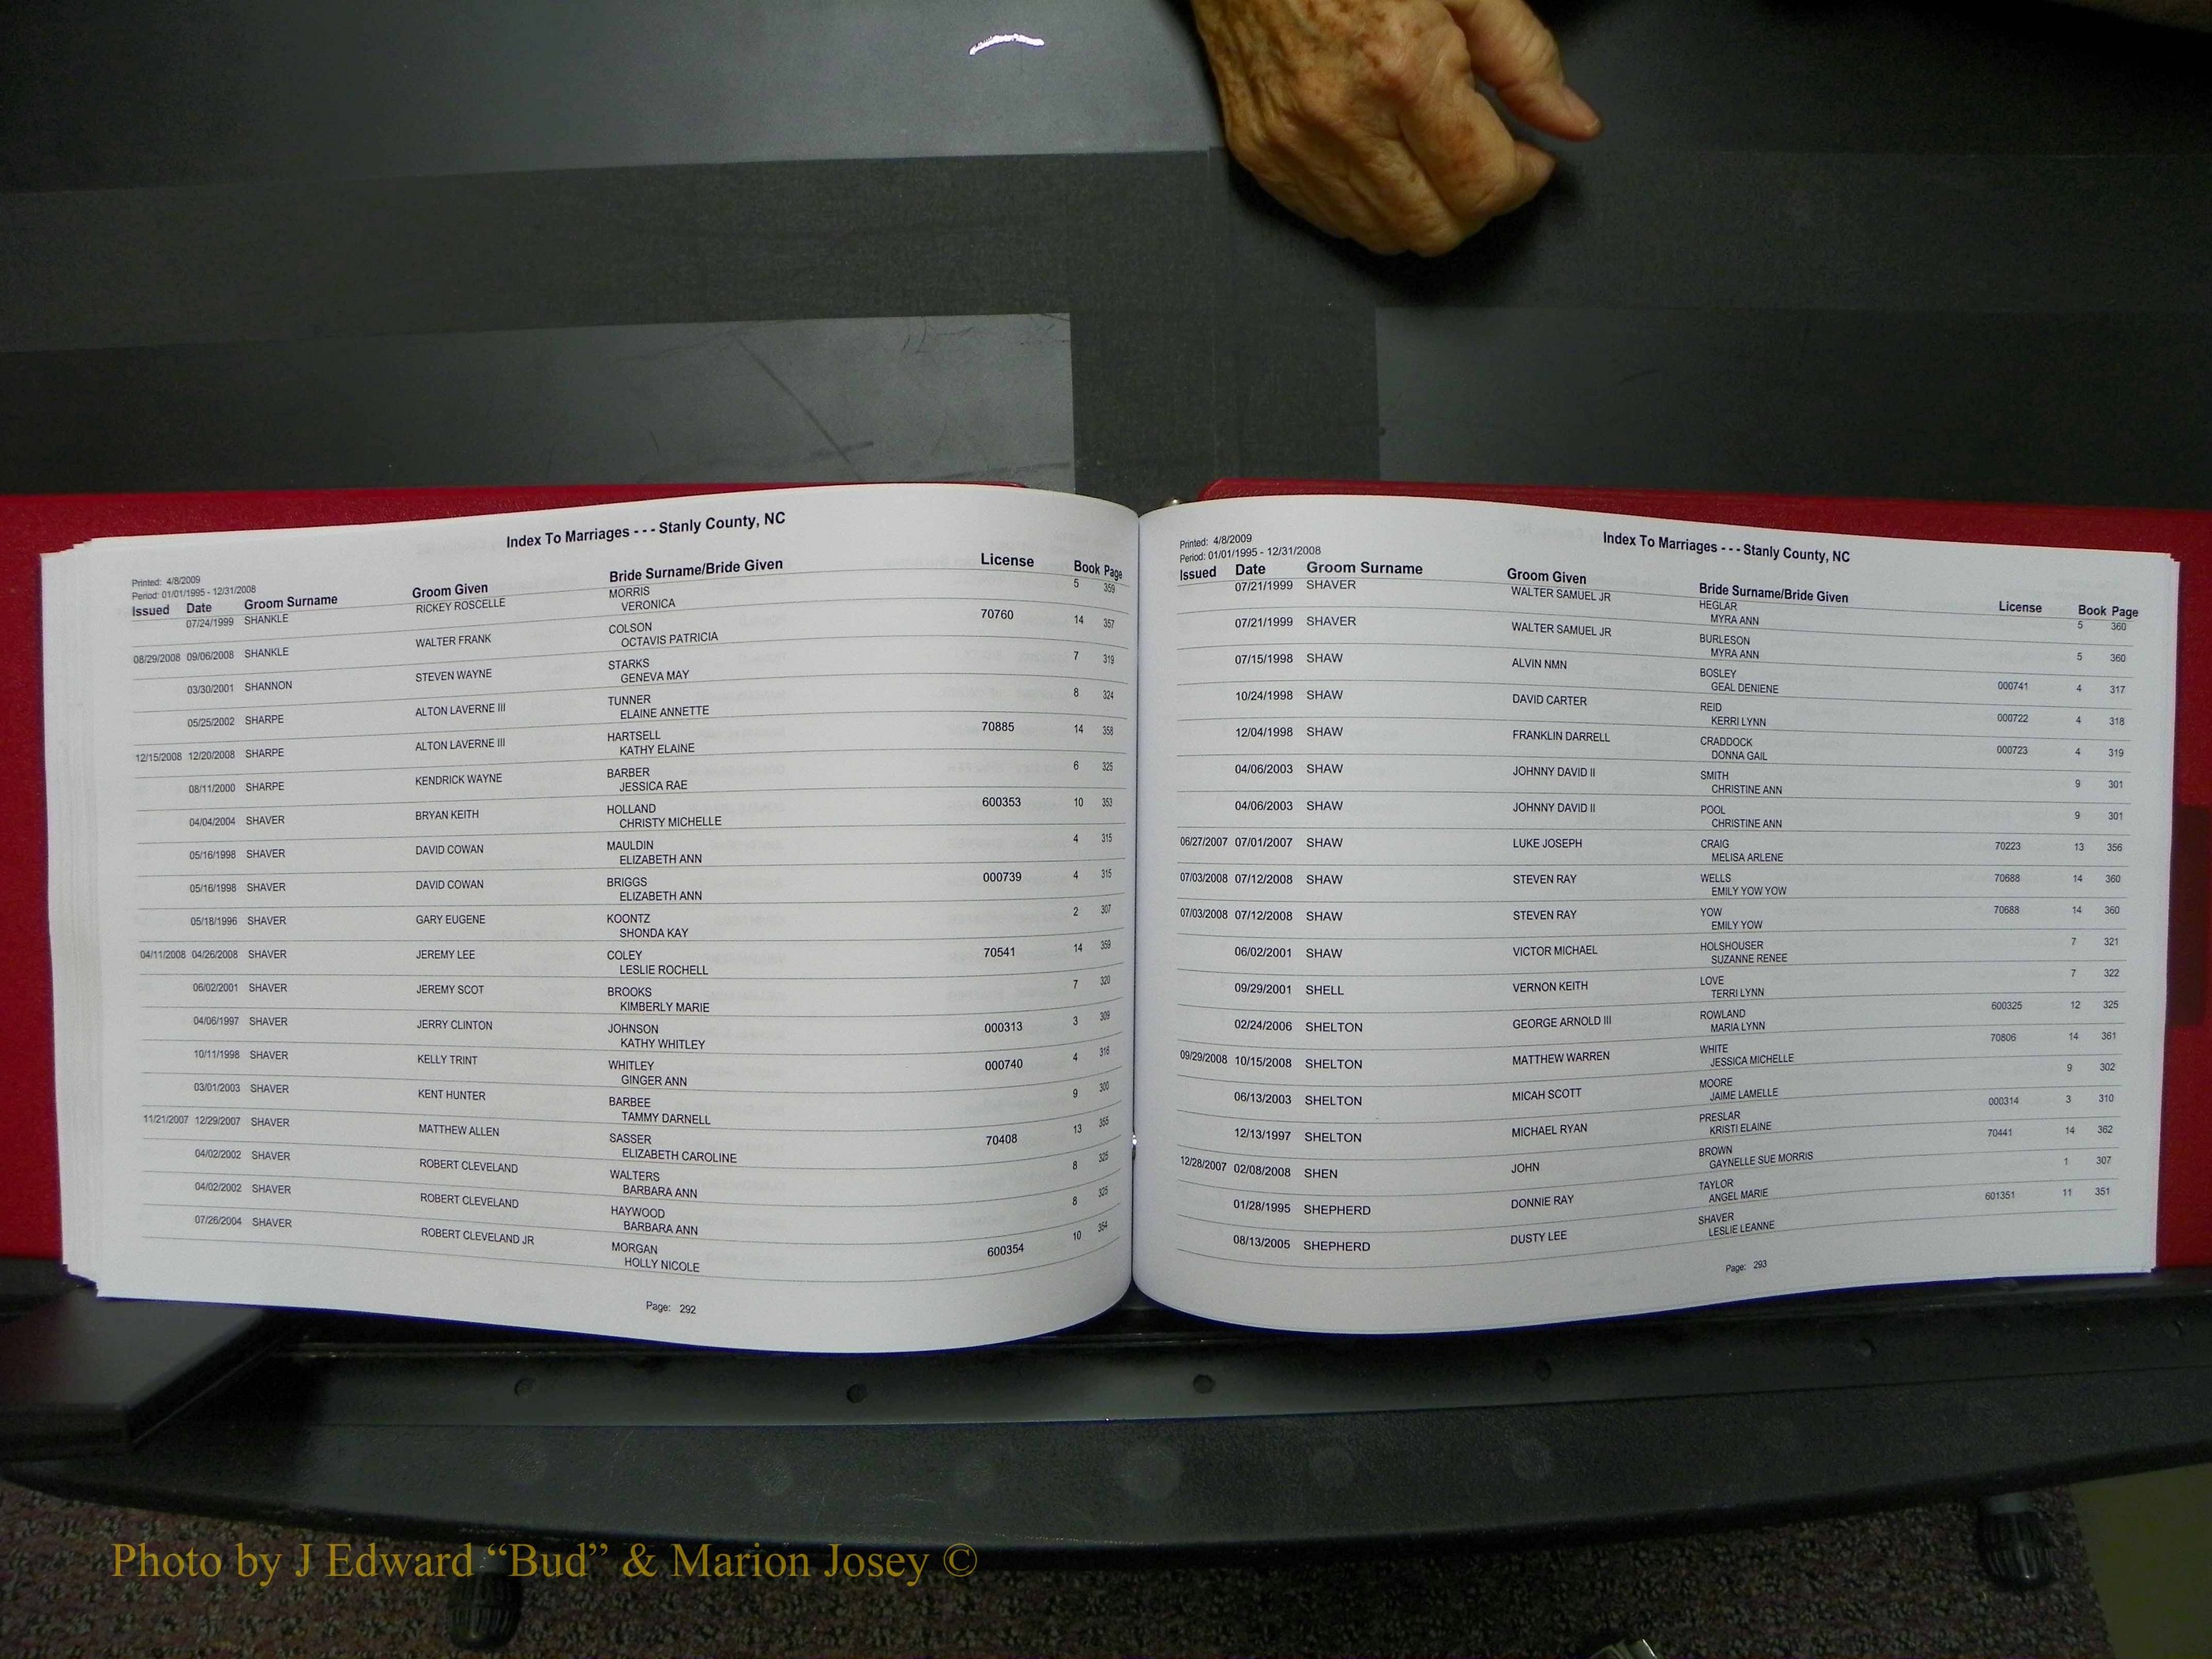 Index To Marriages - - - Stanly County, NC
Printed: 4/8/2009
Period: 01/01/1995 - 12/31/2008
Issued Date Groom Surname Groom Given Bride Surname/Bride Given License Book Page
07/24/1999 SHANKLE RICKEY ROSCELLE MORRIS 5 359
VERONICA
08/29/2008 09/06/2008 SHANKLE WALTER FRANK COLSON 70760 14 357
OCTAVIS PATRICIA
03/30/2001 SHANNON STEVEN WAYNE STARKS 7 319
GENEVA MAY
05/25/2002 SHARPE ALTON LAVERNE III TUNNER 8 324
ELAINE ANNETTE
12/15/2008 12/20/2008 SHARPE ALTON LAVERNE III HARTSELL 70885 14 358
KATHY ELAINE
08/11/2000 SHARPE KENDRICK WAYNE BARBER 6 325
JESSICA RAE
04/04/2004 SHAVER BRYAN KEITH HOLLAND 600353 10 353
CHRISTY MICHELLE
05/16/1998 SHAVER DAVID COWAN MAULDIN 4 315
ELIZABETH ANN
05/16/1998 SHAVER DAVID COWAN BRIGGS 000739 4 315
ELIZABETH ANN
05/18/1996 SHAVER GARY EUGENE KOONTZ 2 307
SHONDA KAY
04/11/2008 04/26/2008 SHAVER JEREMY LEE COLEY 70541 14 359
LESLIE ROCHELL
06/02/2001 SHAVER JEREMY SCOT BROOKS 7 320
KIMBERLY MARIE
04/06/1997 SHAVER JERRY CLINTON JOHNSON 000313 3 309
KATHY WHITLEY
10/11/1998 SHAVER KELLY TRINT WHITLEY 000740 4 316
GINGER ANN
03/01/2003 SHAVER KENT HUNTER BARBEE 9 300
TAMMY DARNELL
11/21/2007 12/29/2007 SHAVER MATTHEW ALLEN SASSER 70408 13 355
ELIZABETH CAROLINE
04/02/2002 SHAVER ROBERT CLEVELAND WALTERS 8 325
BARBARA ANN
04/02/2002 SHAVER ROBERT CLEVELAND HAYWOOD 8 325
BARBARA ANN
07/26/2004 SHAVER ROBERT CLEVELAND JR MORGAN 600354 10 354
HOLLY NICOLE
Page: 292
Index To Marriages - - - Stanly County, NC
Printed: 4/8/2009
Period: 01/01/1995 - 12/31/2008
Issued Date Groom Surname Groom Given Bride Surname/Bride Given License Book Page
07/21/1999 SHAVER WALTER SAMUEL JR HEGLAR 5 360
MYRA ANN
07/21/1999 SHAVER WALTER SAMUEL JR BURLESON 5 360
MYRA ANN
07/15/1998 SHAW ALVIN NMN BOSLEY 000741 4 317
GEAL DENIENE
10/24/1998 SHAW DAVID CARTER REID 000722 4 318
KERRI LYNN
12/04/1998 SHAW FRANKLIN DARRELL CRADDOCK 000723 4 319
DONNA GAIL
04/06/2003 SHAW JOHNNY DAVID II SMITH 9 301
CHRISTINE ANN
04/06/2003 SHAW JOHNNY DAVID II POOL 9 301
CHRISTINE ANN
06/27/2007 07/01/2007 SHAW LUKE JOSEPH CRAIG 70223 13 356
MELISA ARLENE
07/03/2008 07/12/2008 SHAW STEVEN RAY WELLS 70688 14 360
EMILY YOW YOW
07/03/2008 07/12/2008 SHAW STEVEN RAY YOW 70688 14 360
EMILY YOW
06/02/2001 SHAW VICTOR MICHAEL HOLSHOUSER 7 321
SUZANNE RENEE
09/29/2001 SHELL VERNON KEITH LOVE 7 322
TERRI LYNN
02/24/2006 SHELTON GEORGE ARNOLD III ROWLAND 600325 12 325
MARIA LYNN
09/29/2008 10/15/2008 SHELTON MATTHEW WARREN WHITE 70806 14 361
JESSICA MICHELLE
06/13/2003 SHELTON MICAH SCOTT MOORE 9 302
JAIME LAMELLE
12/13/1997 SHELTON MICHAEL RYAN PRESLAR 000314 3 310
KRISTI ELAINE
12/28/2007 02/08/2008 SHEN JOHN BROWN 70441 14 362
GAYNELLE SUE MORRIS
01/28/1995 SHEPHERD DONNIE RAY TAYLOR 1 307
ANGEL MARIE
08/13/2005 SHEPHERD DUSTY LEE SHAVER 601351 11 351
LESLIE LEANNE
Page: 293
Photo by J Edward “Bud” & Marion Josey ©